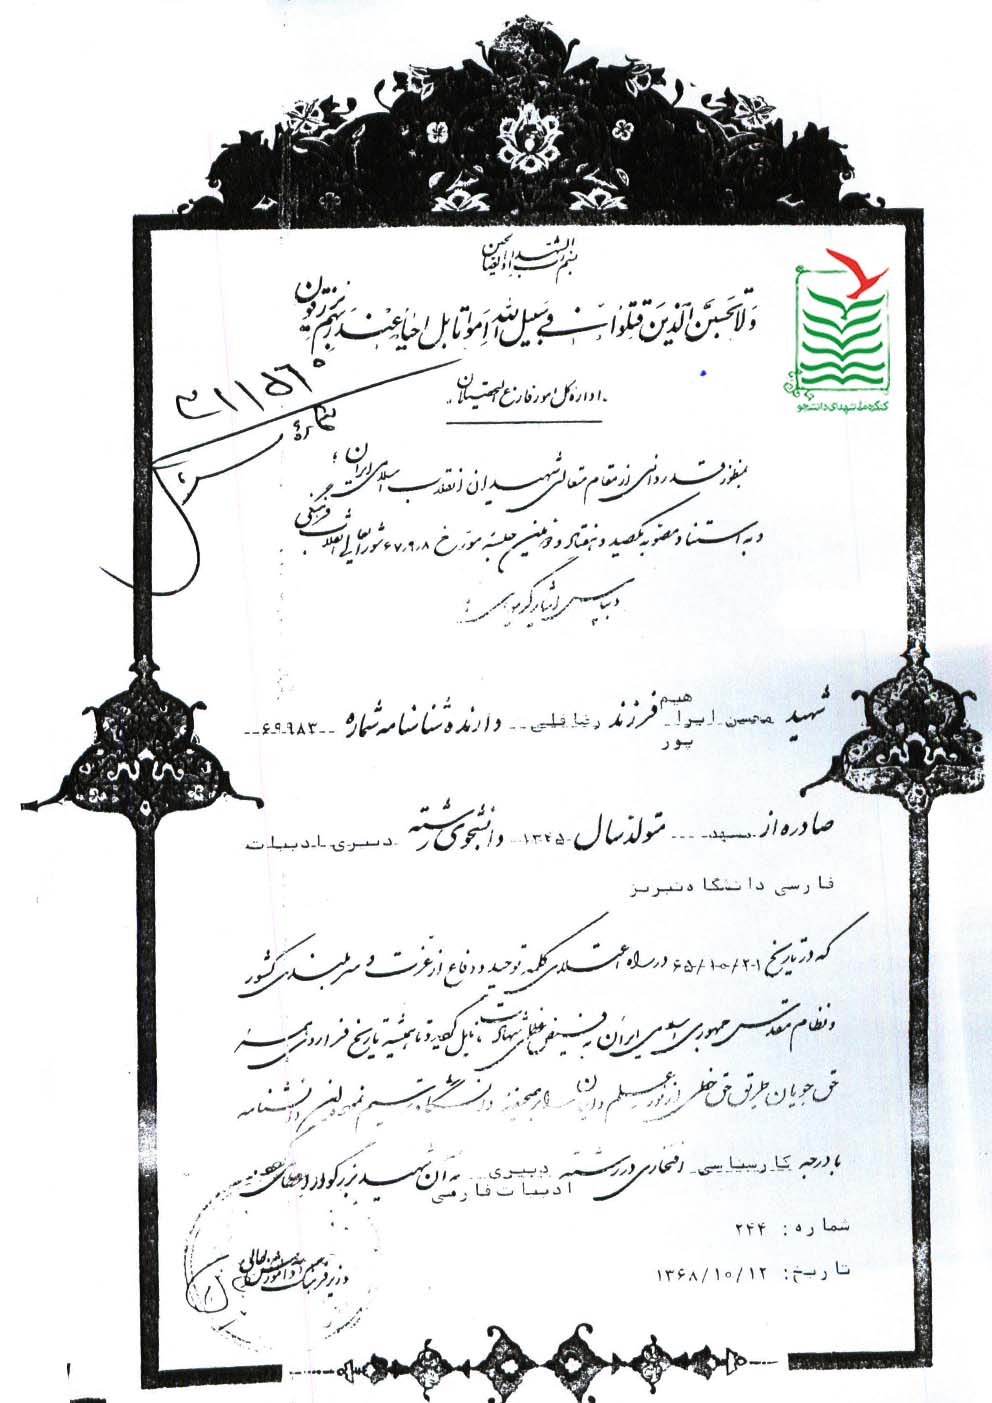 بسم رب الشهداء و الصالحین
ولا تحسبن الذین قتلوا فی سبیل الله امواتا بل احیاء عند ربهم یرزقون
کنگره ملی شهدای دانشجو
اداره کل امور فارغ التحصیلان
بمنظور قدردانی از مقام متعالی شهیدان انقلاب اسلامی ایران ؛
و به استناد مصوبه یکصد و هفتاد و دومین جلسه مورخ ۶۷٫۹٫۸ شورایعالی انقلاب فرهنگی
و بپاس ایثارگریهای :
شهید محسن ابراهیم پور فرزند رضا قلی دارنده شناسنامه شماره ۶۹۹۸۳
صادره از متولد سال ۱۳۴۵ دانشجوی رشته دبیری ادبیات
فارسی دانشگاه تبریز
که در تاریخ ۶۵/۱۰/۲۱ در راه اعتلای کلمه توحید و دفاع از عزت و سربلندی کشور
و نظام مقدس جمهوری اسلامی ایران به فیض عظمای شهادت نایل گردید و تا همیشه تاریخ فرا روی همه
حق جویان طریق حق خطی از نور علم و ایمان را بر دانشگاه ترسیم نمود این دانشنامه
با درجه کارشناسی افتخاری در رشته دبیری ادبیات فارسی به آن شهید بزرگوار اعطا
شماره : ۲۴۴
تاریخ: ۱۳۶۸/۱۰/۱۲
وزیر فرهنگ و آموزش عالی